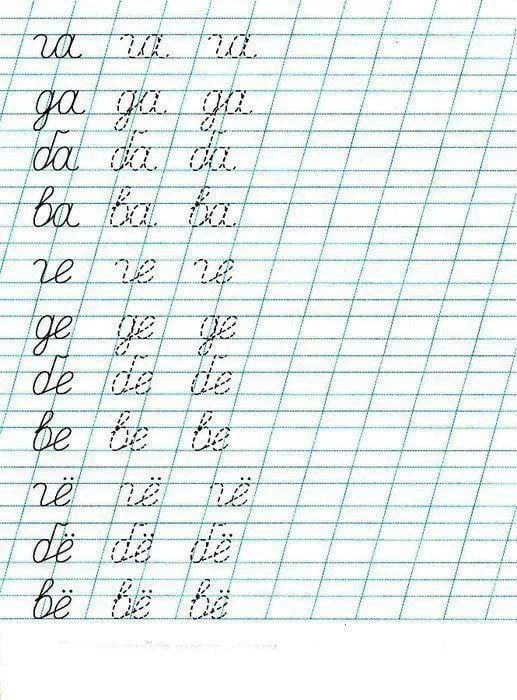 га га га
да да да
ба ба ба
ва ва ва
ге ге ге
де де де
бе бе бе
ве ве ве
гё гё гё
бё бё бё
вё вё вё